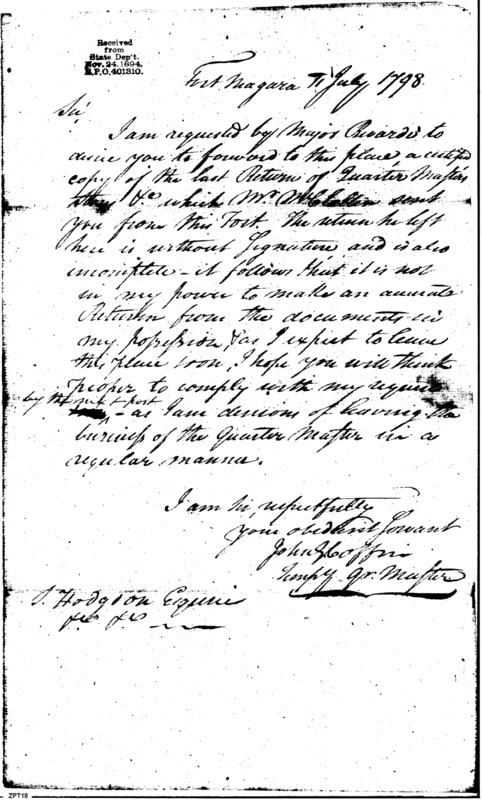 Received
from
State Dep't.
Nov. 24, 1894.
R.P.O. 401310.
Fort Niagara July 1798.
Sir,
I am requested by Major Rivardi to
desire you to forward to this place, a certified
copy of the last Return of Quarter Masters
&c which Mr. sent
you from this Fort. The return he left
here is without Signature and is also
incomplete - it follows that it is not
in my power to make an accurate
Return from the documents in
my possession, & as I expect to leave
this place soon, I hope you will think
proper to comply with my request
by the next post
- as I am desirous of leaving the
business of the Quarter Master in a
regular manner.
I am Sir, respectfully
your obedient Servant
John J Coffin
Tempy Qr. Master
S. Hodgdon Esquire
&c &c
ZPT18